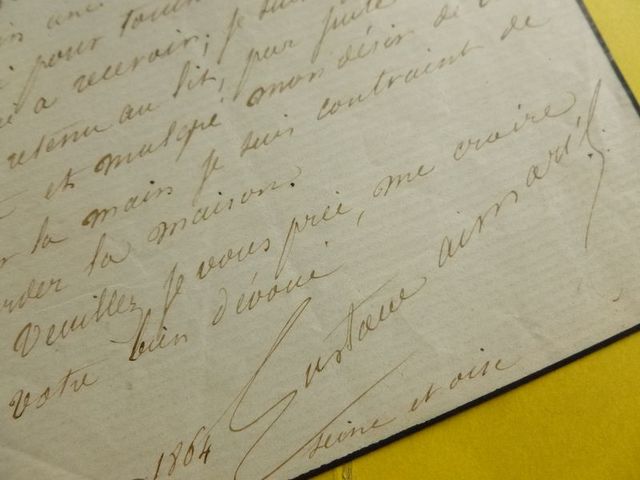 pour
à recevoir; je suis
retenu au lit, par suite
et malgré mon désir de
la main je suis contraint de
la maison.
Veuillez je vous prie, me croire
votre bien dévoué,
Gustave aimard
1864
Seine et oise